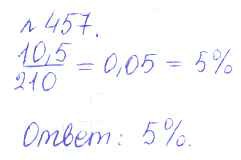 № 457.
10,5/210 = 0,05 = 5%
Ответ: 5%.